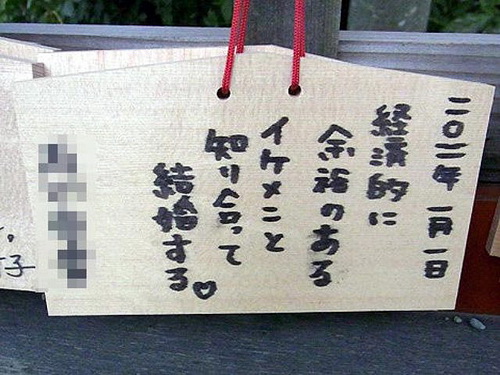 二〇一一年 一月一日
経済的に
余裕のある
イケメンと
知り合って
結婚する♡
子